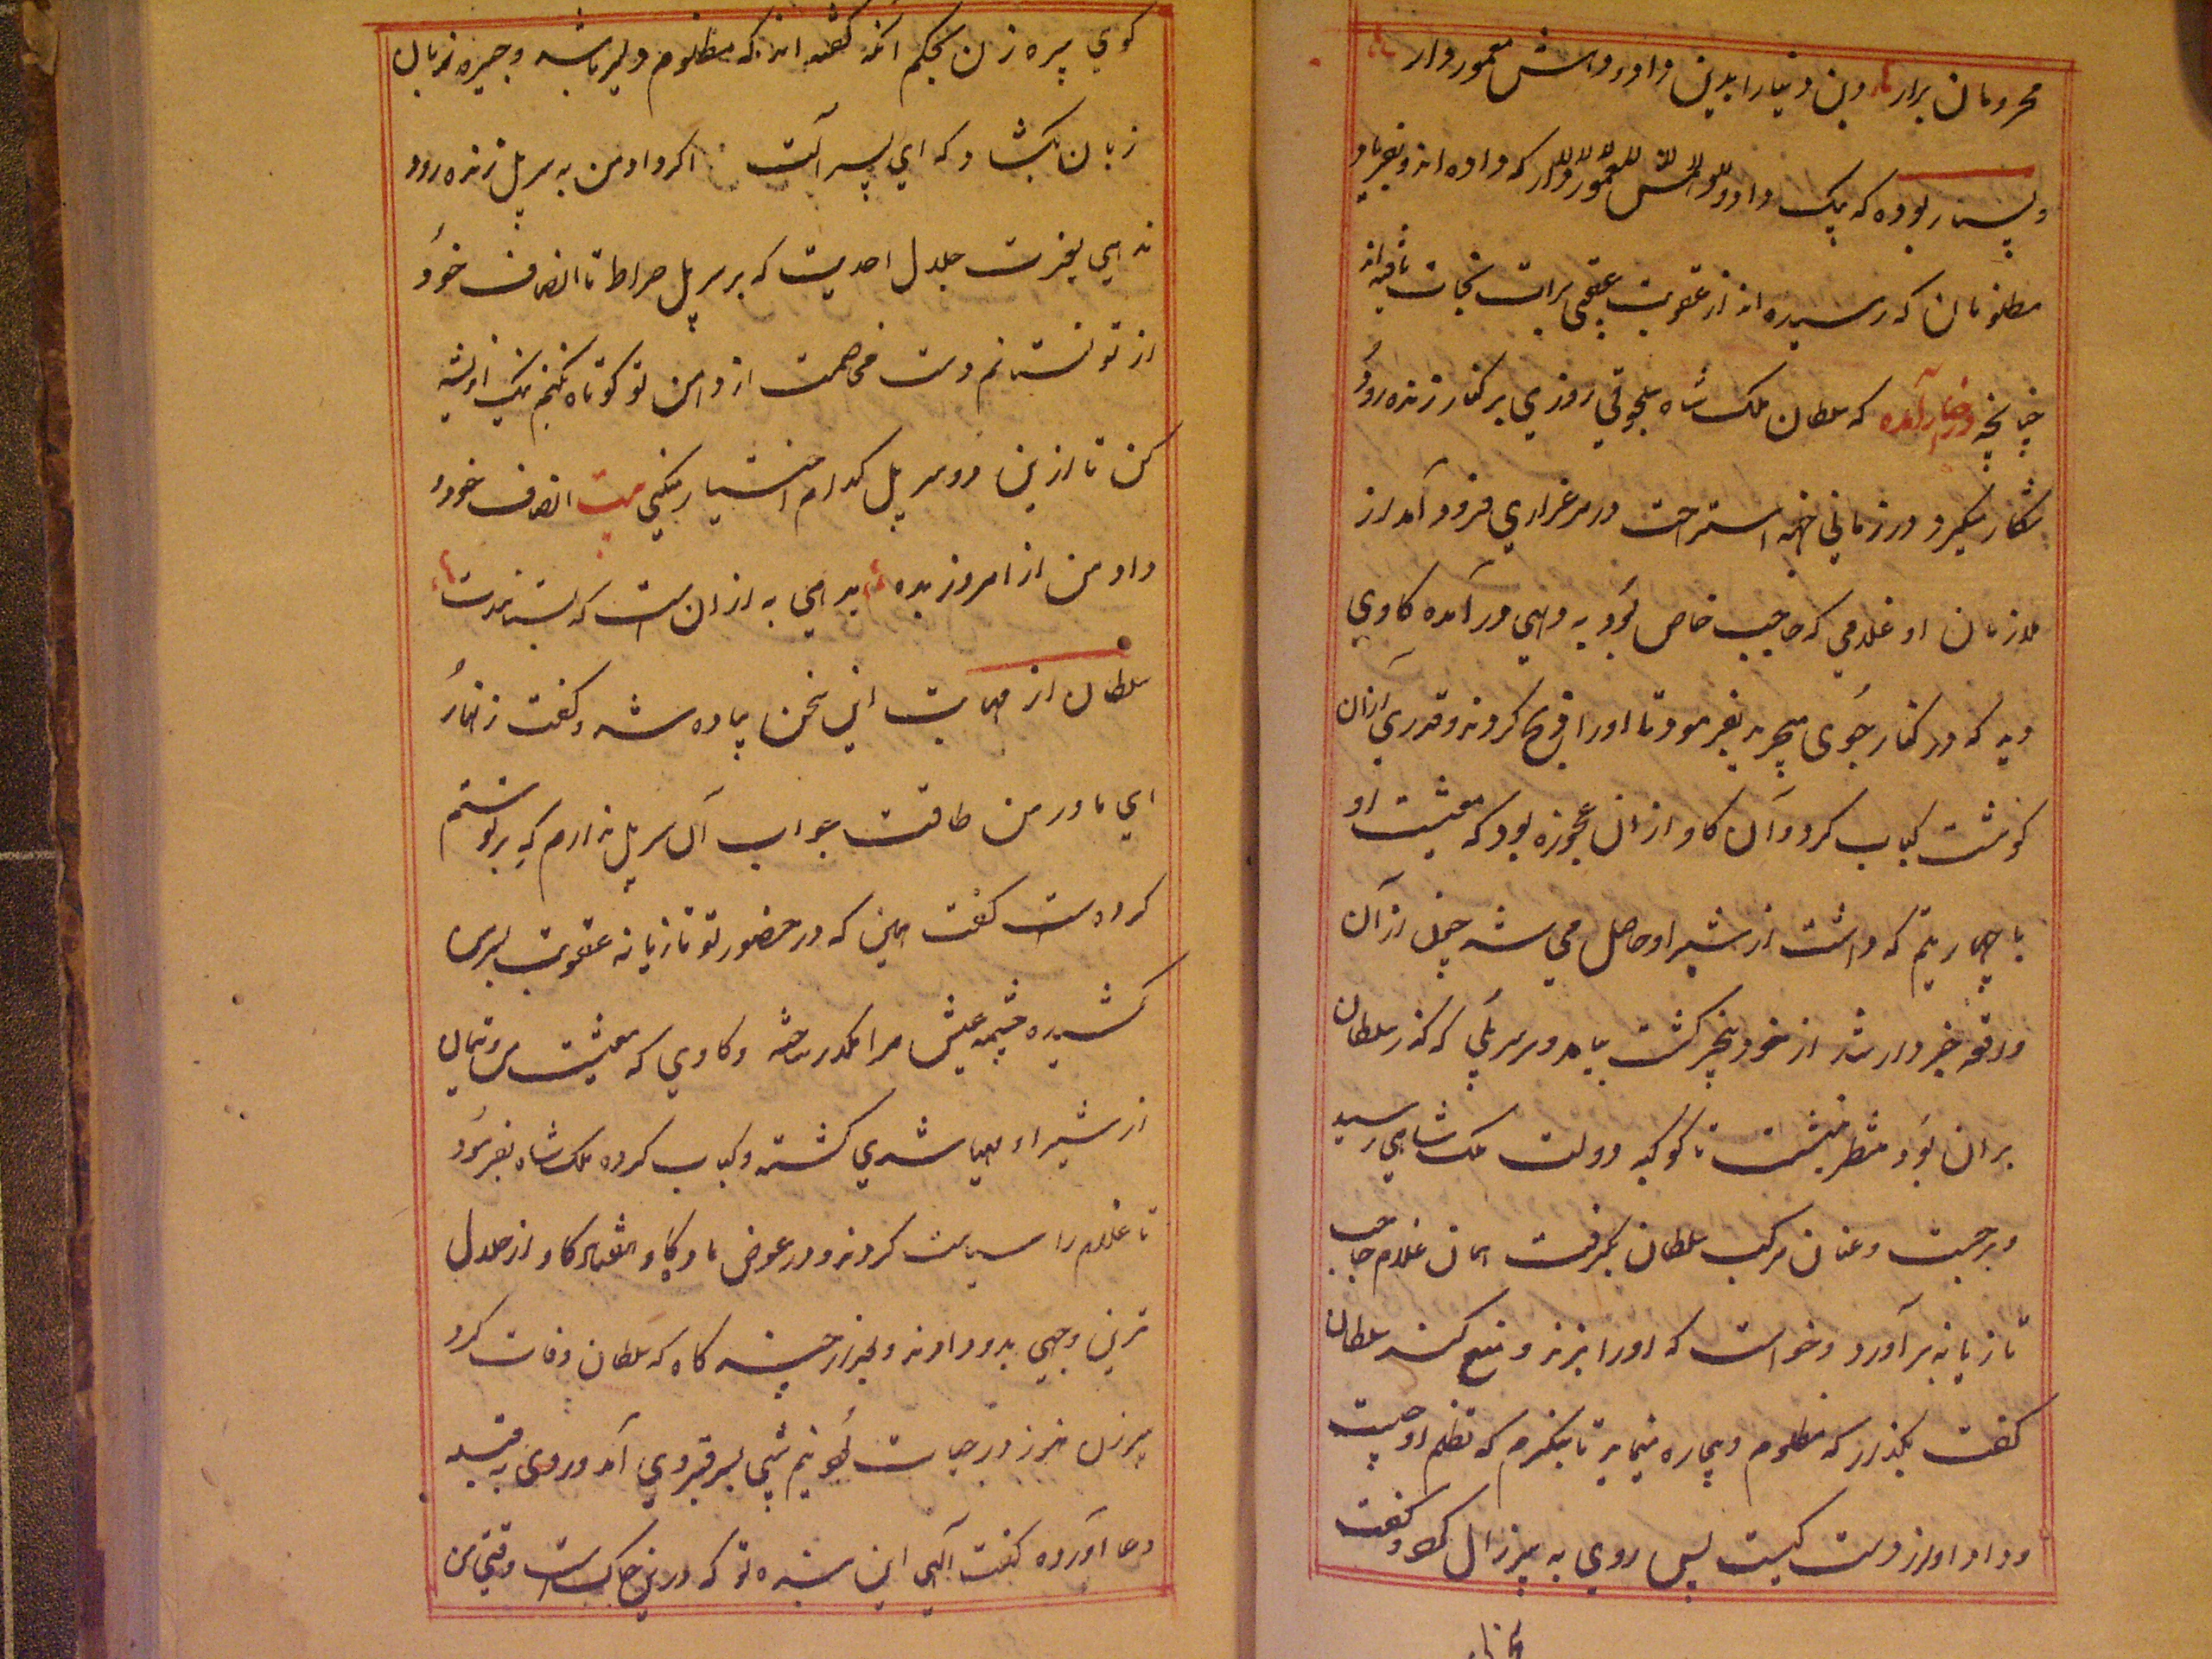 محرومان برار دین و دنیا را بدین داد و دهش معمور دار
و بسیار بوده که بیک داد که داده‌اند و بفریاد
مظلومان که رسیده‌اند از عقوبت عقبی برات نجات یافته‌اند
چنانچه در اخبار آمده که سلطان ملک شاه سلجوقی روزی بر کنار زنده رود
شکار میکرد و زمانی بجهة استراحت در مرغزاری فرود آمد از
ملازمان او غلامی که حاجب خاص بود به دهی در آمده کاوی
دید که در کنار جوی میچرید بفرمود تا او را ذبح کردند و قدری از ان
کوشت کباب کرد و آن کاو از ان عجوزه بود که معیشت او
با چهار یتیم که داشت از شیر او حاصل می شد چون از آن
واقعه خبردار شد از خود بیخبر کشت بیامد و بر سر پلی که کذر سلطان
بران بود منتظر بنشست تا کوکبه دولت ملک شاهی رسید
برجست و عنان مرکب سلطان بکرفت همان غلام حاجب
تازیانه برآورد و خواست که او را بزند و منع کند سلطان
کفت بکذار که مظلوم و بیچاره مینماید تا بنکرم که تظلم او چیست
و داد او از دست کیست پس روی به پیر زال کرد و کفت
کوی پیره زن بحکم آنکه کفته‌اند که مظلوم دلیر باشد و چیره زبان
زبان بکشاد که ای پسر اکر داد من به سر پل زنده رود
ندهی بعزت جلال احدیت که بر سر پل صراط تا انصاف خود
از تو نستانم دست مخاصمت از دامن تو کوتاه نکنم نیک اندیشه
کن تا ازین دو سر پل کدام اختیار میکنی بیت انصاف خود و
داد من از امروز بده بدهی به از ان است که بستانندت
سلطان از مهابت این سخن پیاده شد و کفت زنهار
ای مادر من طاقت جواب آن سر پل ندارم که بر تو ستم
کرده است کفت همین که در حضور تو تازیانه عقوبت بر من
کشیده چشمه عیش مرا مکدر ساخته و کاوی که معیشت من و یتیمان
از شیر او مهیا شدی کشته و کباب کرده ملک شاه بفرمود
تا غلام را سیاست کردند و در عوض ماده کاو هفتاد کاو از حلال
ترین وجهی بدو دادند و بعد از چند کاه که سلطان وفات کرد
پیرزن هنوز در حیات بود نیم شبی بسر قبر وی آمد و روی به قبله
دعا آورده کفت الهی این بنده تو که درین خاک است وقتی من